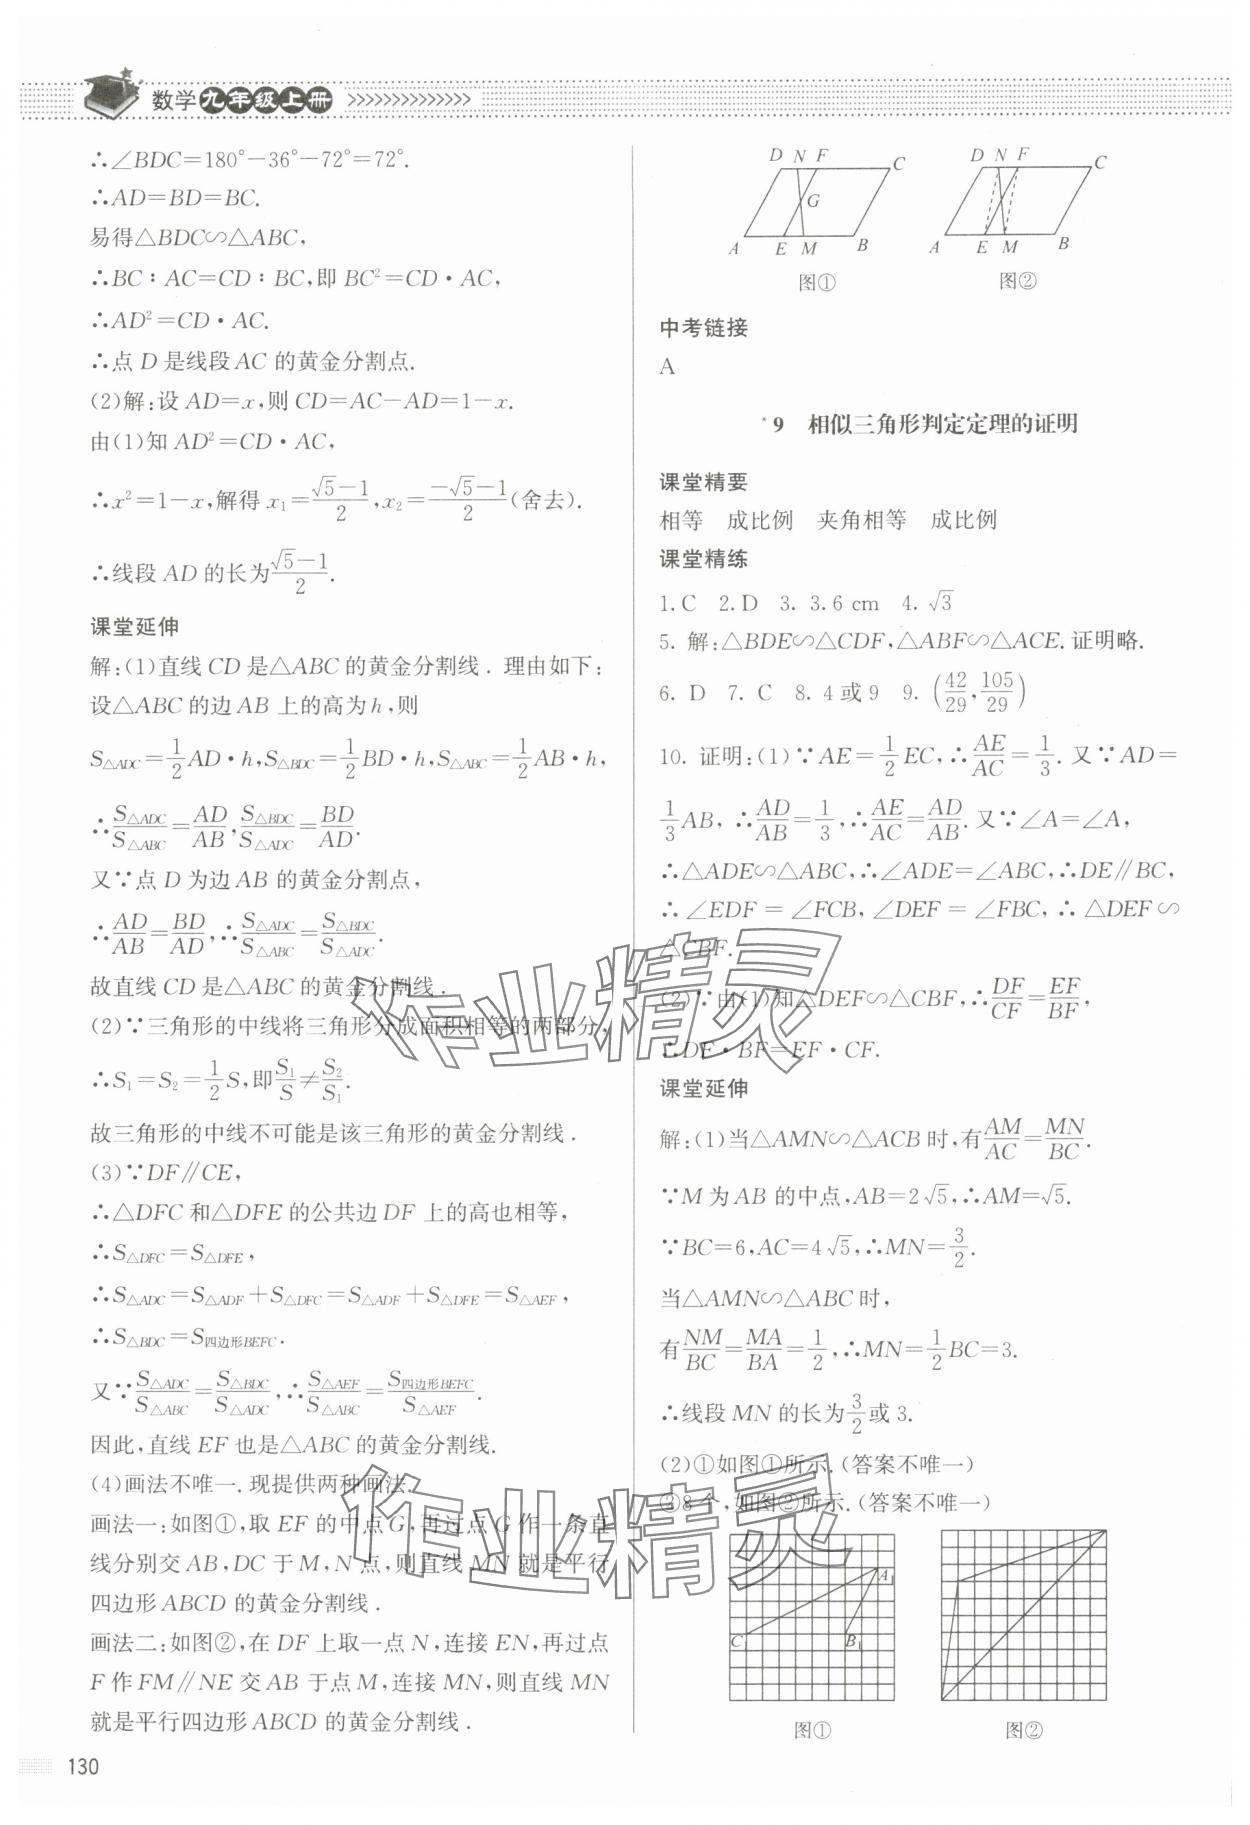 数学九年级上册
∴∠BDC=180°-36°-72°=72°.
∴AD=BD=BC.
易得△BDC∽△ABC,
∴BC∶AC=CD∶BC,即BC²=CD·AC,
∴AD²=CD·AC.
∴点D是线段AC的黄金分割点.
(2)解:设AD=x,则CD=AC-AD=1-x.
由(1)知AD²=CD·AC,
∴x²=1-x,解得x₁=(√5-1)/2,x₂=(-√5-1)/2(舍去).
∴线段AD的长为(√5-1)/2.
课堂延伸
解:(1)直线CD是△ABC的黄金分割线.理由如下:
设△ABC的边AB上的高为h,则
S△ADC=1/2 AD·h,S△BDC=1/2 BD·h,S△ABC=1/2 AB·h,
∴S△ADC/S△ABC=AD/AB,S△BDC/S△ADC=BD/AD.
又∵点D为边AB的黄金分割点,
∴AD/AB=BD/AD,∴S△ADC/S△ABC=S△BDC/S△ADC.
故直线CD是△ABC的黄金分割线.
(2)∵三角形的中线将三角形分成面积相等的两部分,
∴S₁=S₂=1/2 S,即S₁/S≠S₂/S₁.
故三角形的中线不可能是该三角形的黄金分割线.
(3)∵DF∥CE,
∴△DFC和△DFE的公共边DF上的高也相等,
∴S△DFC=S△DFE,
∴S△ADC=S△ADF+S△DFC=S△ADF+S△DFE=S△AEF,
∴S△BDC=S四边形BEFC.
又∵S△ADC/S△ABC=S△BDC/S△ADC,∴S△AEF/S△ABC=S四边形BEFC/S△AEF.
因此,直线EF也是△ABC的黄金分割线.
(4)画法不唯一.现提供两种画法.
画法一:如图①,取EF的中点G,再过点G作一条直
线分别交AB,DC于M,N点,则直线MN就是平行
四边形ABCD的黄金分割线.
画法二:如图②,在DF上取一点N,连接EN,再过点
F作FM∥NE交AB于点M,连接MN,则直线MN
就是平行四边形ABCD的黄金分割线.
D N F C
G
A E M B
图①
D N F C
A E M B
图②
中考链接
A
*9 相似三角形判定定理的证明
课堂精要
相等 成比例 夹角相等 成比例
课堂精练
1.C 2.D 3. 3.6 cm 4. √3
5. 解:△BDE∽△CDF,△ABF∽△ACE.证明略.
6. D 7. C 8. 4或9 9. (42/29,105/29)
10. 证明:(1)∵AE=1/2 EC,∴AE/AC=1/3.又∵AD=
1/3 AB,∴AD/AB=1/3,∴AE/AC=AD/AB.又∵∠A=∠A,
∴△ADE∽△ABC,∴∠ADE=∠ABC,∴DE∥BC,
∴∠EDF=∠FCB,∠DEF=∠FBC,∴△DEF∽
△CBF.
(2)∵由(1)知△DEF∽△CBF,∴DF/CF=EF/BF,
∴DF·BF=EF·CF.
课堂延伸
解:(1)当△AMN∽△ACB时,有AM/AC=MN/BC.
∵M为AB的中点,AB=2√5,∴AM=√5.
∵BC=6,AC=4√5,∴MN=3/2.
当△AMN∽△ABC时,
有NM/BC=MA/BA=1/2,∴MN=1/2 BC=3.
∴线段MN的长为3/2或3.
(2)①如图①所示.(答案不唯一)
②8个,如图②所示.(答案不唯一)
A₁
C₁ B₁
图①
图②
作业精灵
作业精灵
130